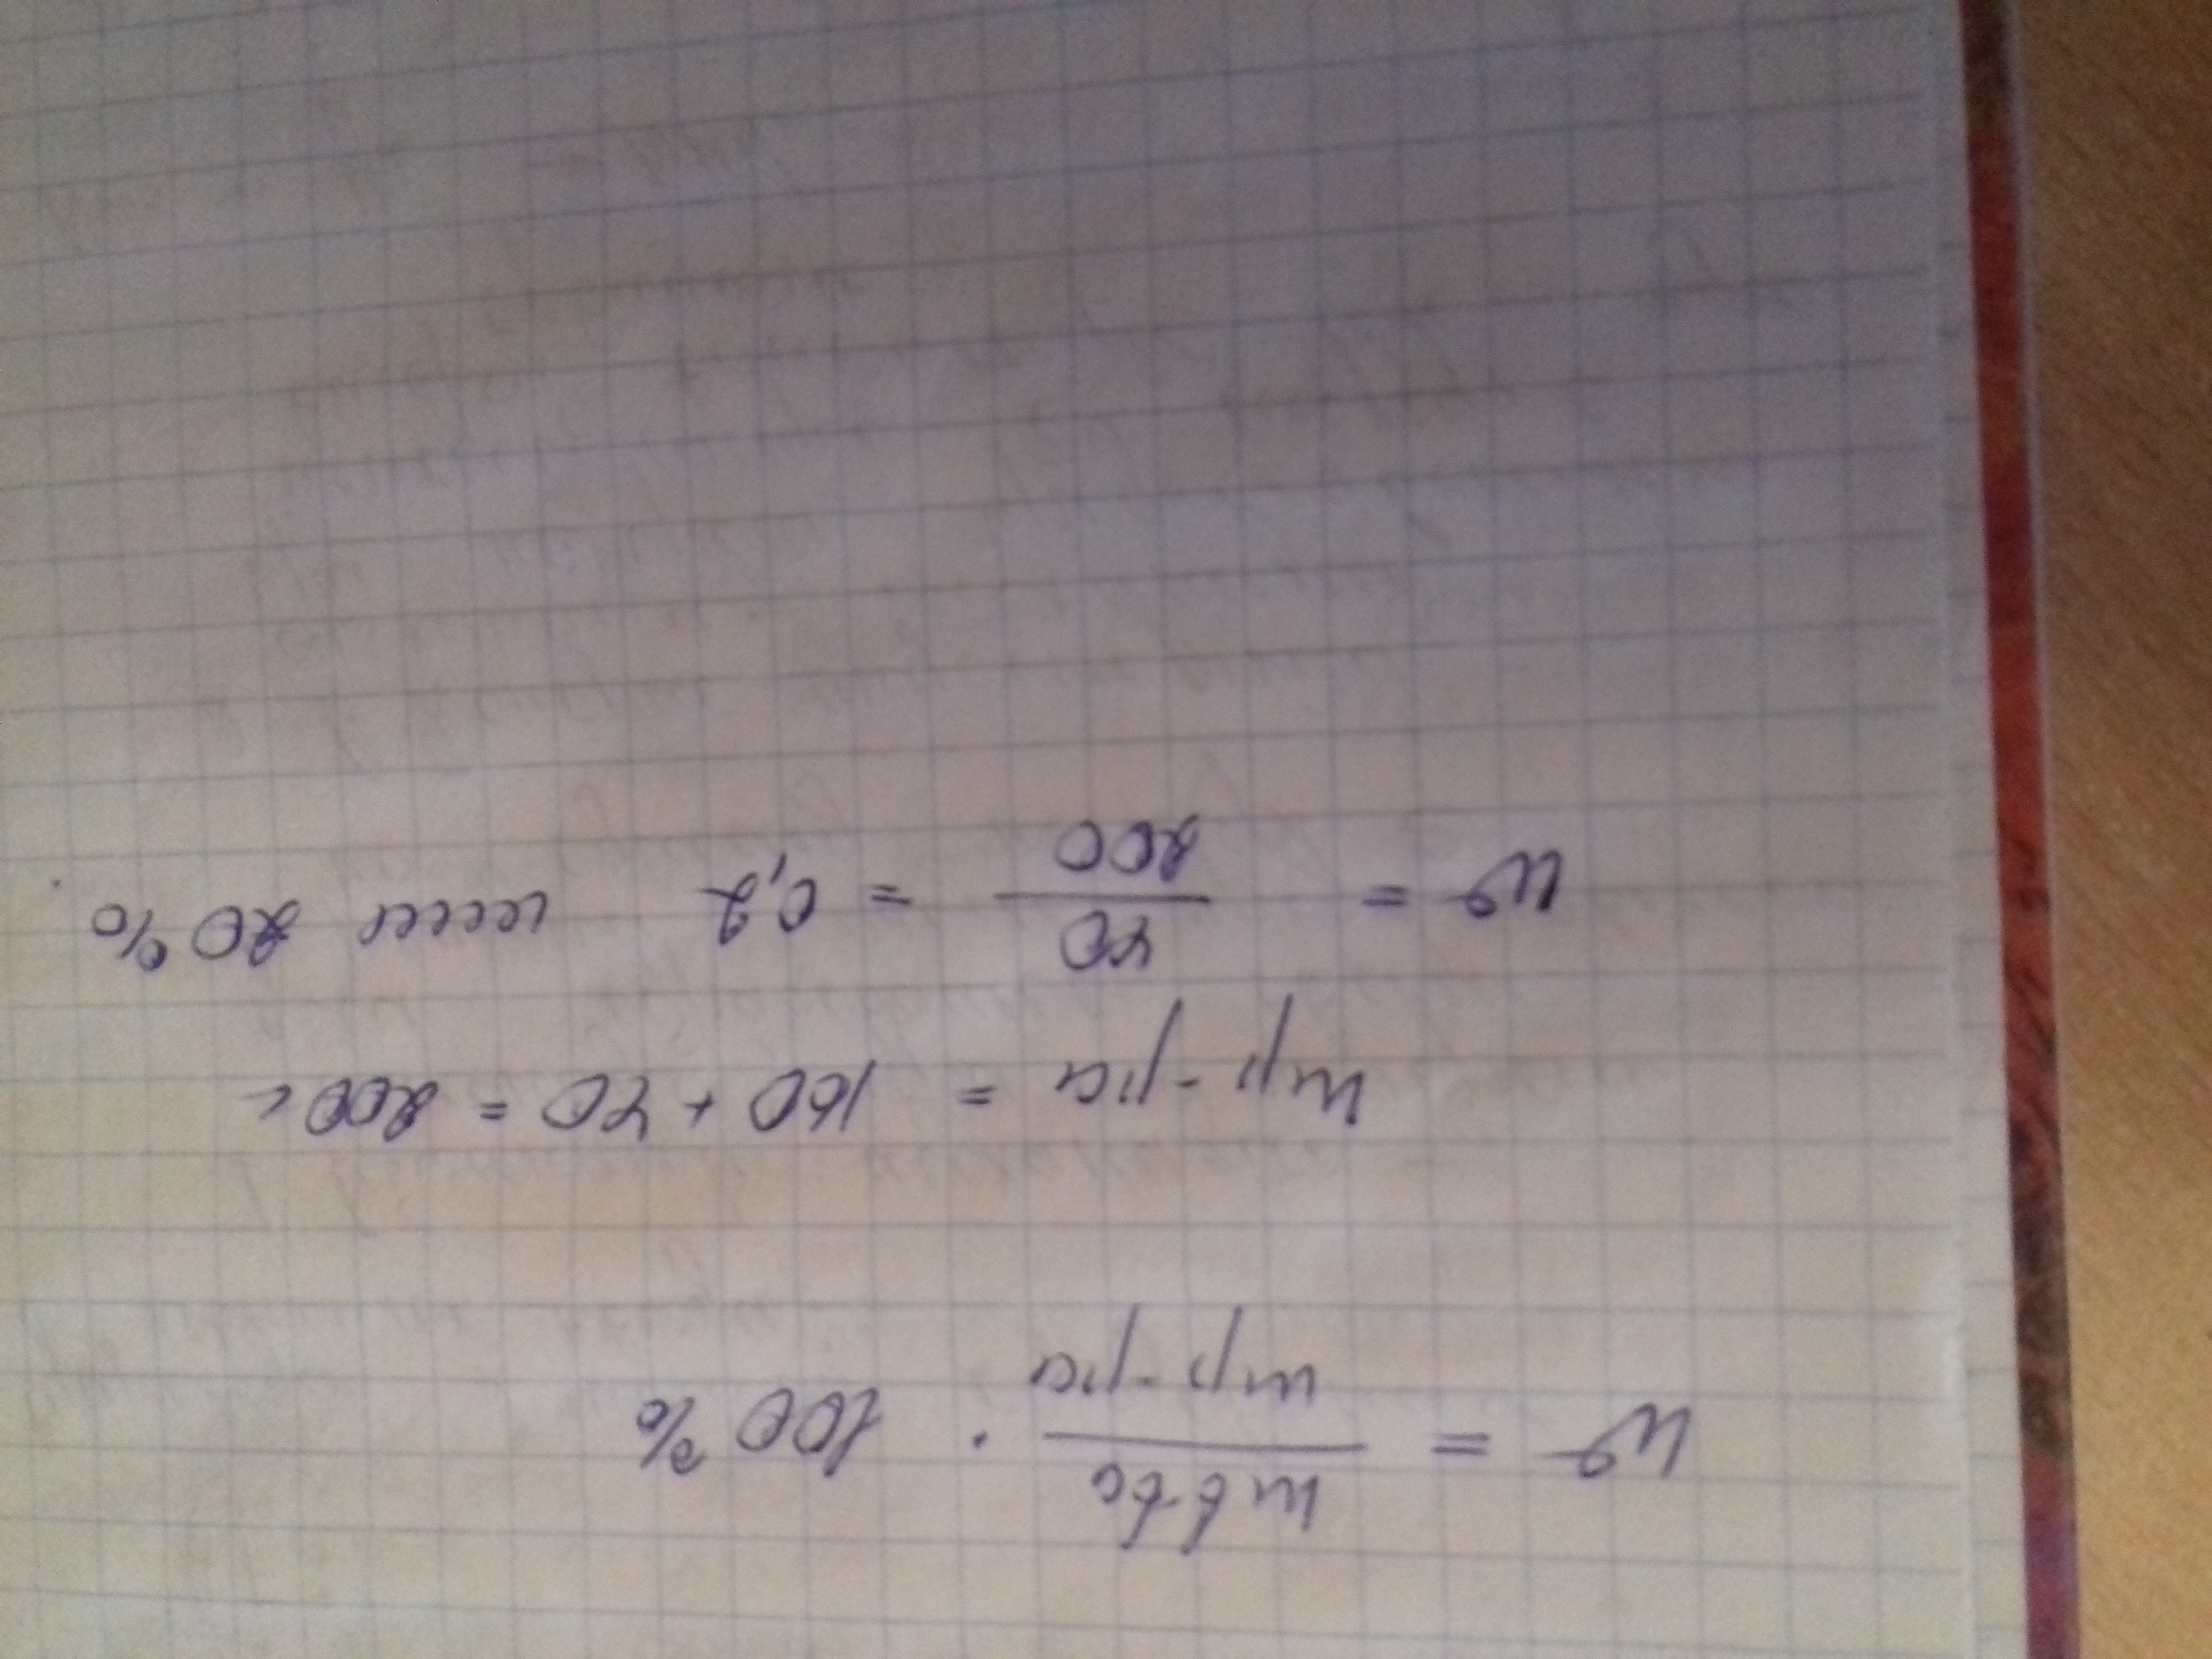 w = m в-ва / m р-ра · 100 %
m р-ра = 160 + 40 = 200 г
w = 40 / 200 = 0,2 или 20 %.